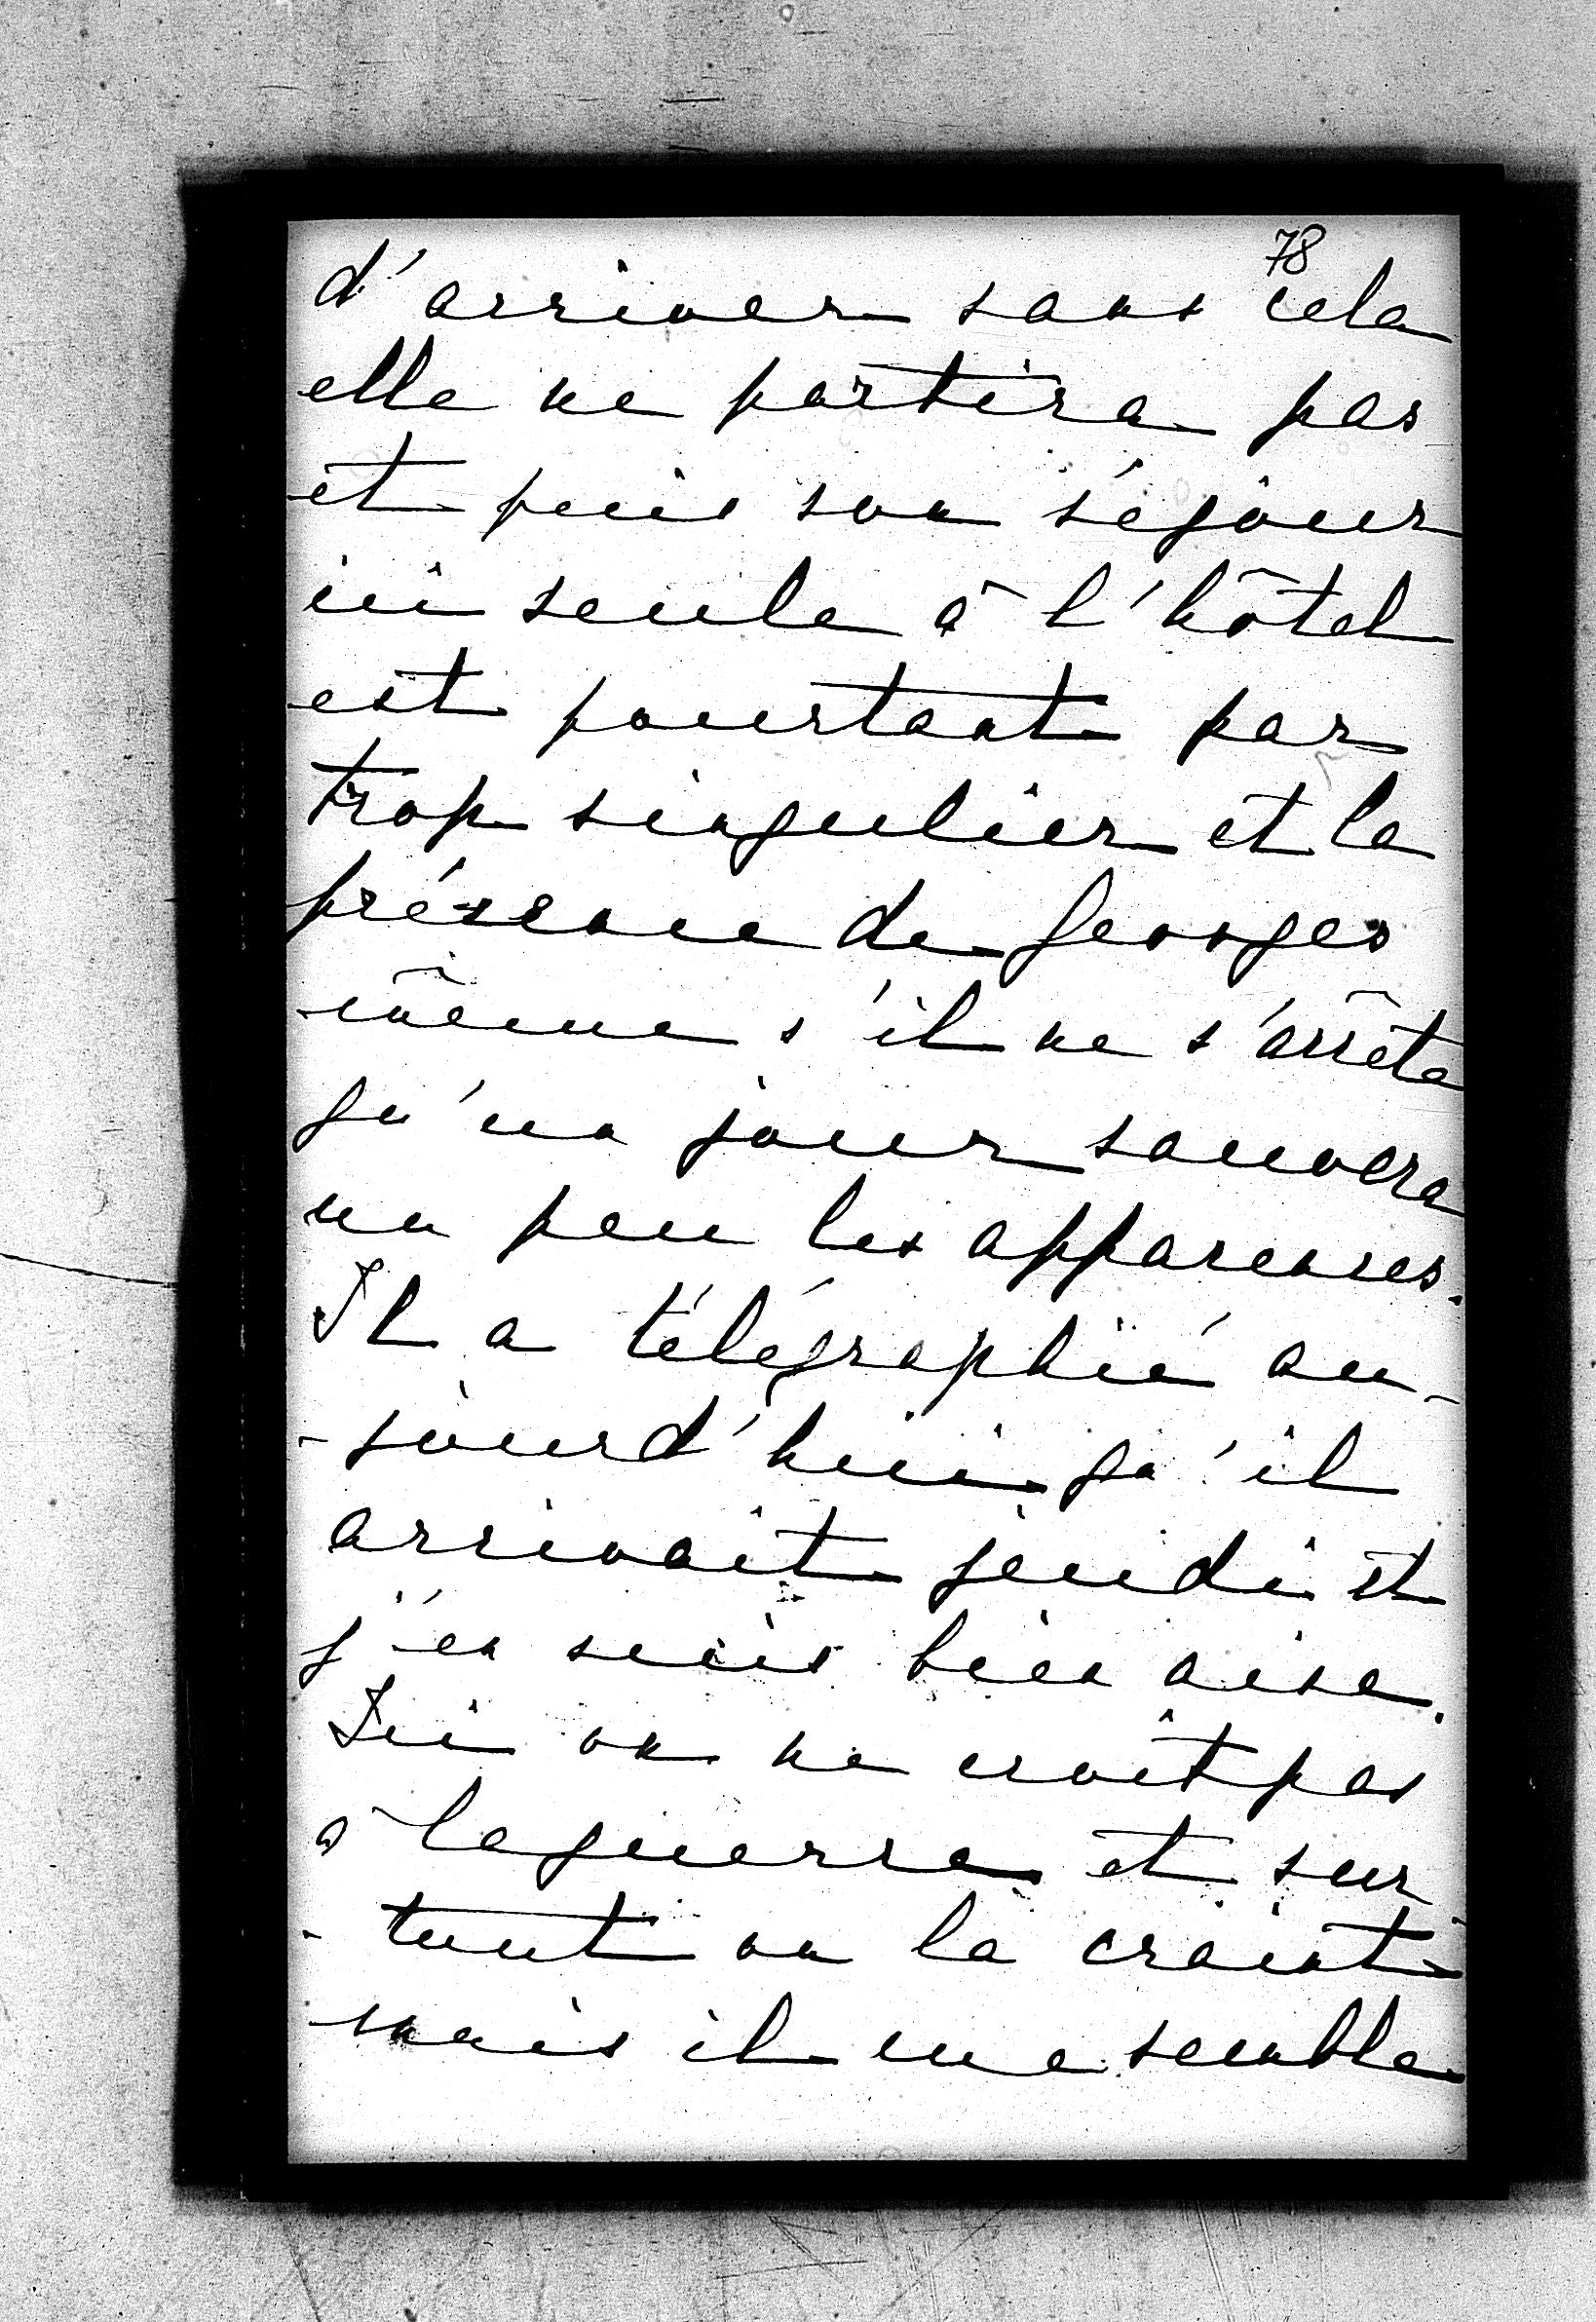 78
d'arriver sans cela
elle ne partira pas
et puis son séjour
ici seule à l'hôtel
est pourtant par
trop singulier et la
présence de Georges
même s'il ne s'arrête
qu'un jour sauvera
un peu les apparences.
Il a télégraphié au-
-jourd'hui qu'il
arrivait jeudi et
j'en suis bien aise.
Ici on ne croit pas
à la guerre et sur
-tout on la craint
mais il me semble